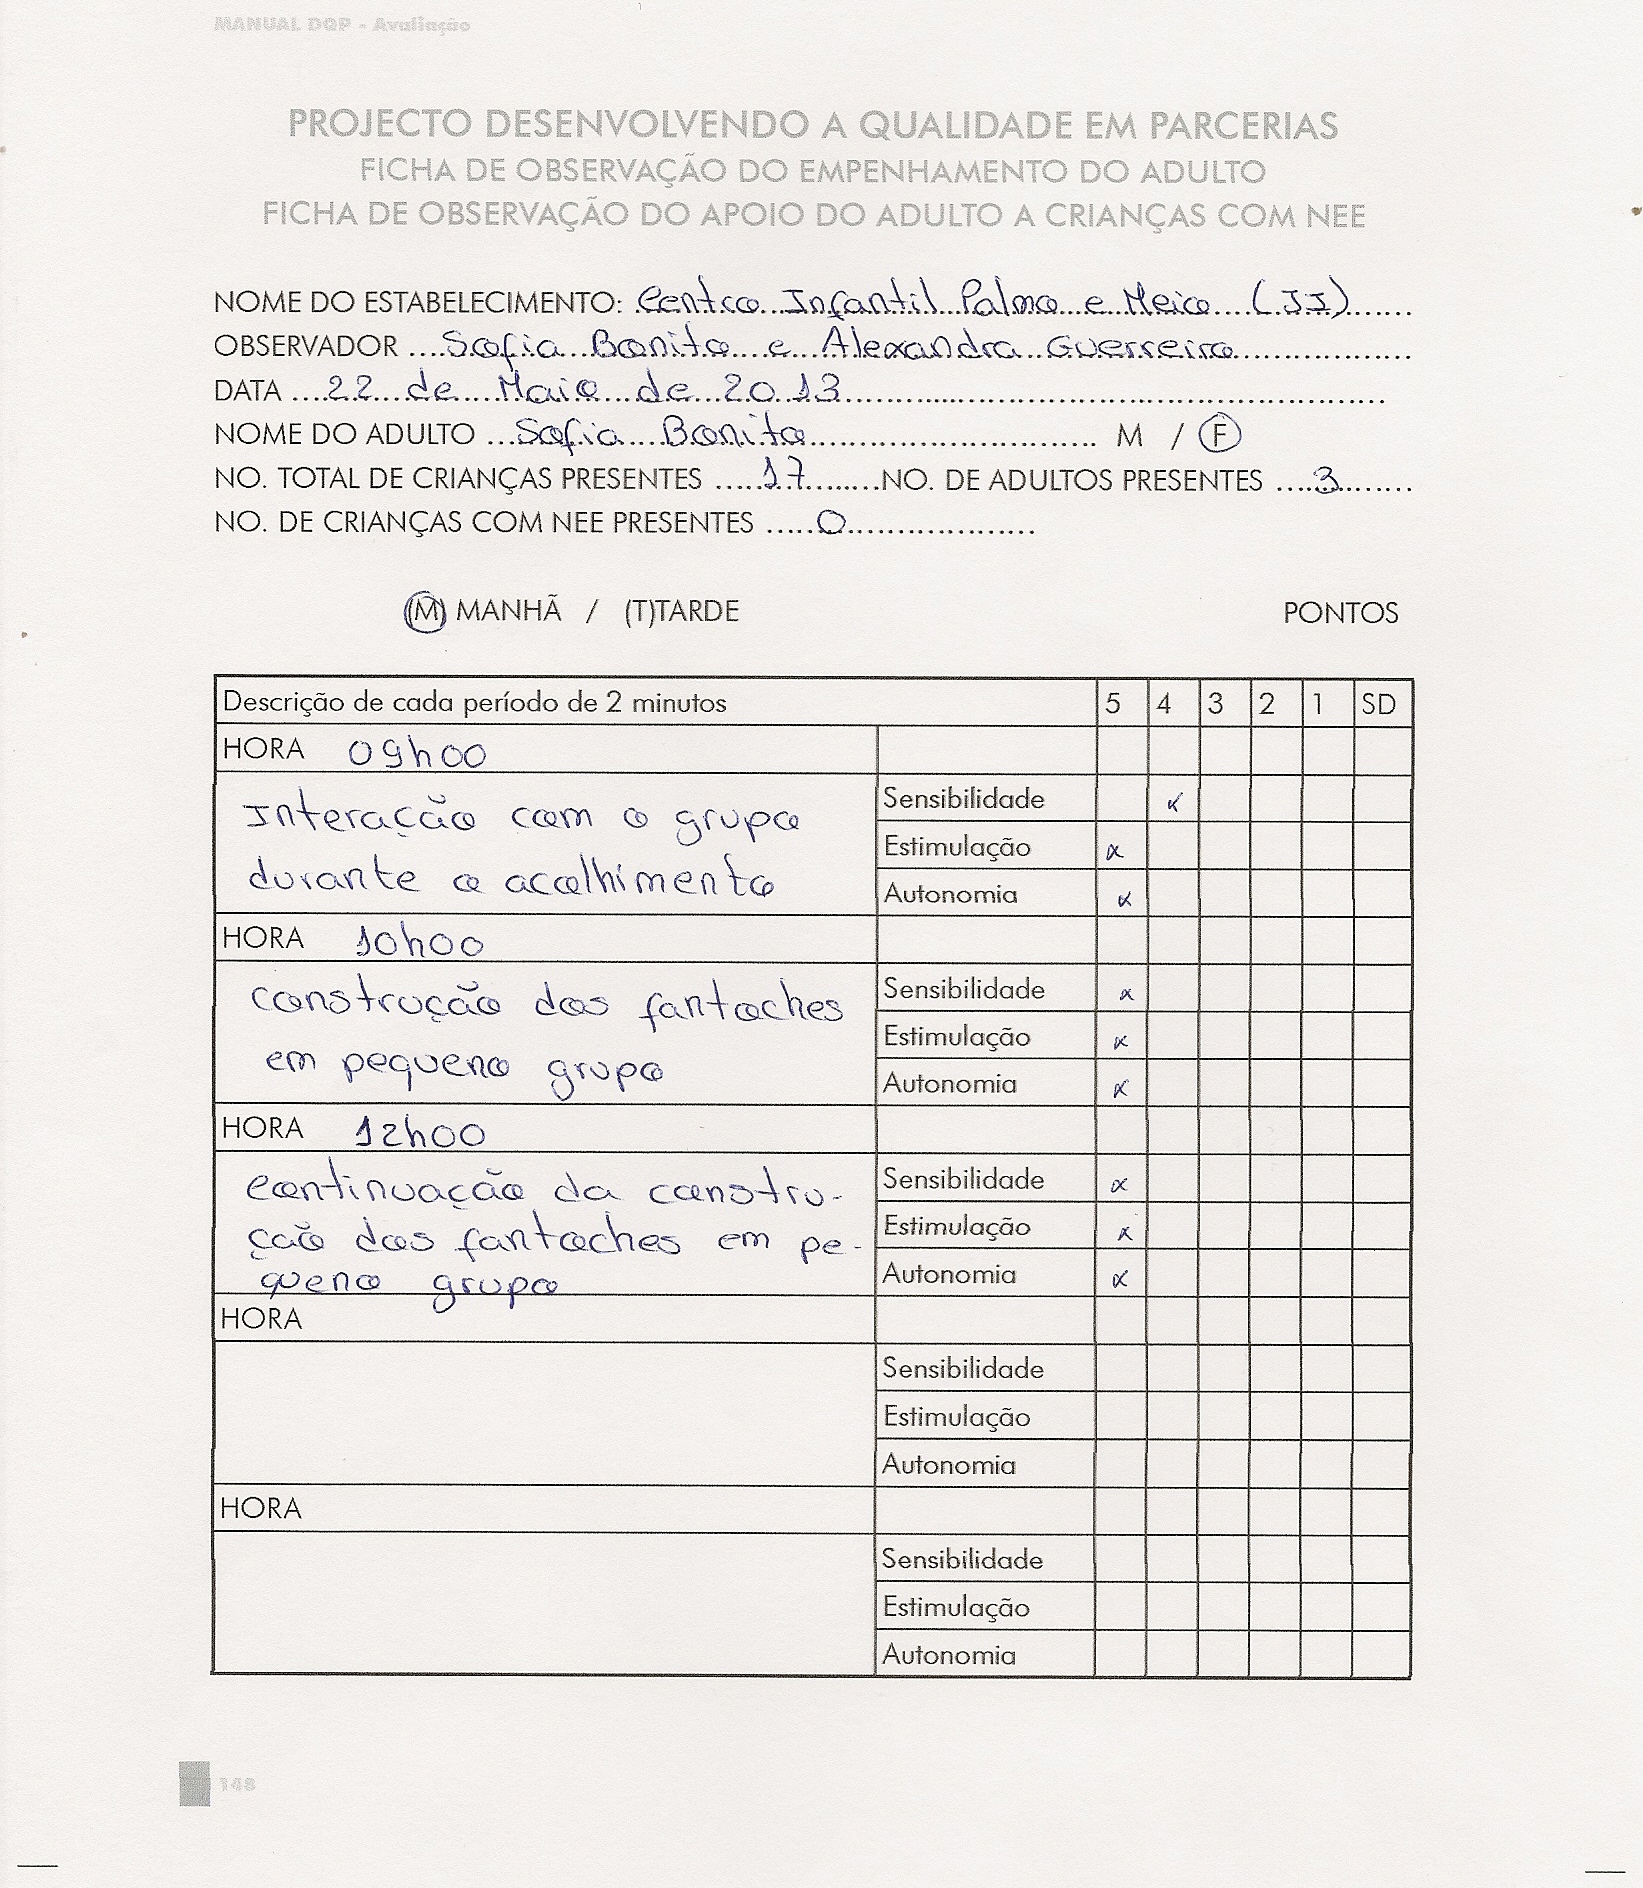 MANUAL DQP - Avaliação
PROJECTO DESENVOLVENDO A QUALIDADE EM PARCERIAS
FICHA DE OBSERVAÇÃO DO EMPENHAMENTO DO ADULTO
FICHA DE OBSERVAÇÃO DO APOIO DO ADULTO A CRIANÇAS COM NEE
NOME DO ESTABELECIMENTO: Centro Infantil Palmo e Meio (JI)
OBSERVADOR Sofia Bonito e Alexandra Guerreiro
DATA 22 de Maio de 2013
NOME DO ADULTO Sofia Bonito M / F
NO. TOTAL DE CRIANÇAS PRESENTES 17 NO. DE ADULTOS PRESENTES 3
NO. DE CRIANÇAS COM NEE PRESENTES 0
(M) MANHÃ / (T)TARDE PONTOS
Descrição de cada período de 2 minutos 5 4 3 2 1 SD
HORA 09h00
Interação com o grupo
durante o acolhimento
Sensibilidade x
Estimulação x
Autonomia x
HORA 10h00
construção dos fantoches
em pequeno grupo
Sensibilidade x
Estimulação x
Autonomia x
HORA 12h00
Continuação da constru-
ção dos fantoches em pe-
queno grupo
Sensibilidade x
Estimulação x
Autonomia x
HORA
Sensibilidade
Estimulação
Autonomia
HORA
Sensibilidade
Estimulação
Autonomia
148